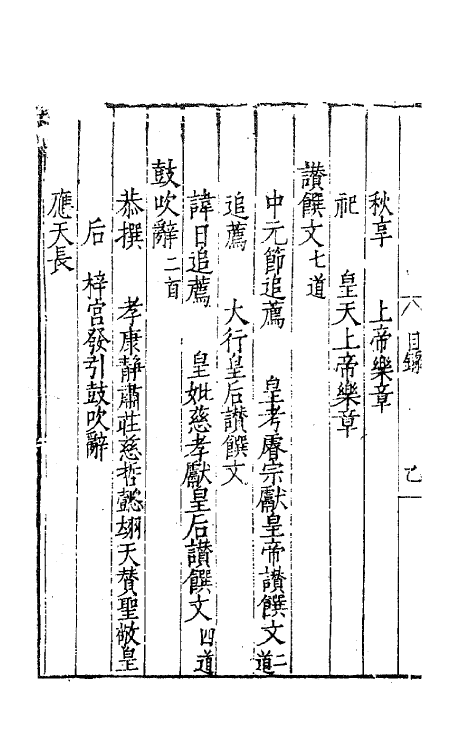 目錄
秋享　上帝樂章
祀　皇天上帝樂章
讃饌文七道
中元節追薦　皇考睿宗獻皇帝讃饌文二道
追薦　大行皇后讃饌文
諱日追薦　皇妣慈孝獻皇后讃饌文四道
鼓吹辭二首
恭撰　孝康靜肅莊慈哲懿翊天贊聖敬皇
后　梓宮發引鼓吹辭
應天長